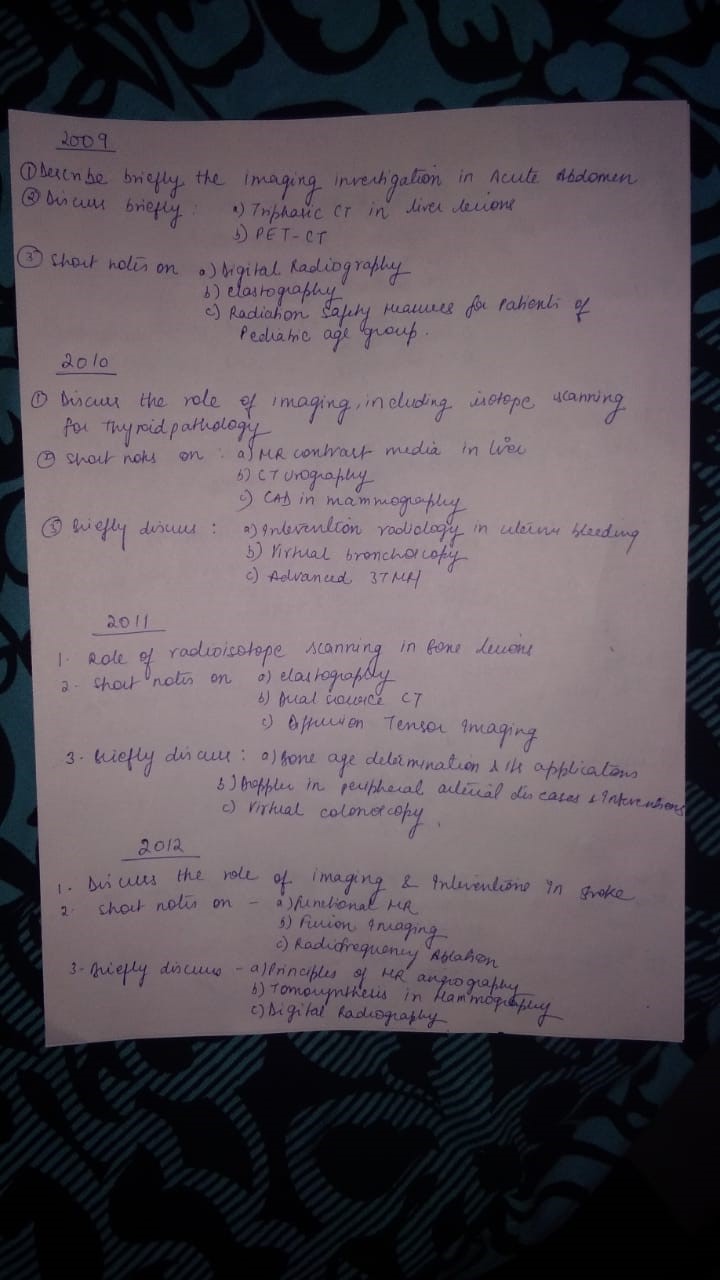 2009
① Describe briefly the imaging investigation in Acute Abdomen
② Discuss briefly : a) Triphasic CT in liver lesions
b) PET-CT
③ Short notes on a) Digital Radiography
b) elastography
c) Radiation Safety measures for Patients of
Pediatric age group.
2010
① Discuss the role of imaging, including isotope scanning
for Thyroid pathology
② Short notes on : a) MR contrast media in liver
b) CT urography
c) CAD in mammography
③ Briefly discuss : a) Intervention radiology in uterine bleeding
b) Virtual bronchoscopy
c) Advanced 3T MRI
2011
1. Role of radioisotope scanning in Bone lesions
2. Short notes on a) elastography
b) Dual source CT
c) Diffusion Tensor Imaging
3. Briefly discuss : a) Bone age determination & its applications
b) Doppler in peripheral arterial diseases & Interventions
c) Virtual colonoscopy.
2012
1. Discuss the role of imaging & Interventions in Stroke
2. Short notes on - a) functional MR
b) Fusion Imaging
c) Radiofrequency Ablation
3. Briefly discuss - a) Principles of MR angiography
b) Tomosynthesis in Mammography
c) Digital Radiography